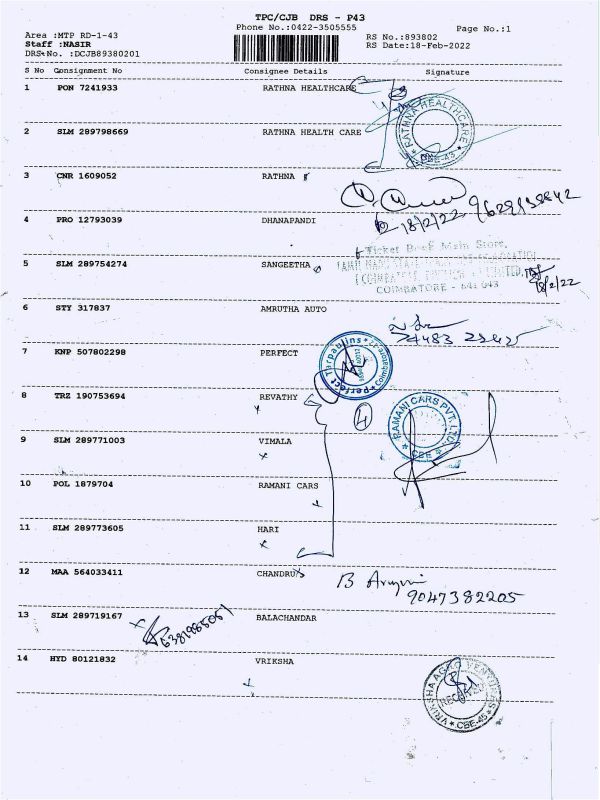 TPC/CJB DRS - P43
Phone No.:0422-3505555
Page No.:1
Area :MTP RD-1-43
RS No.:893802
Staff :NASIR
RS Date:18-Feb-2022
DRS No. :DCJB89380201
S No Consignment No Consignee Details Signature
1 PON 7241933 RATHNA HEALTHCARE
RATHNA HEALTHCARE
CBE-43
2 SLM 289798669 RATHNA HEALTH CARE
3 CNR 1609052 RATHNA
18/2/22 9629138842
4 PRO 12793039 DHANAPANDI
Ticket Book Main Store,
5 SLM 289754274 SANGEETHA
COIMBATORE - 641 043
18/2/22
6 STY 317837 AMRUTHA AUTO
7 KNP 507802298 PERFECT
Perfect Tarpaulins
Coimbatore
8 TRZ 190753694 REVATHY
4
RAMANI CARS PVT. LTD.
CBE
9 SLM 289771003 VIMALA
10 POL 1879704 RAMANI CARS
11 SLM 289773605 HARI
12 MAA 564033411 CHANDRU
9047382205
13 SLM 289719167 BALACHANDAR
6381985061
14 HYD 80121832 VRIKSHA
VRIKSHA AGRO VENTURES
RECEIVED
CBE-45